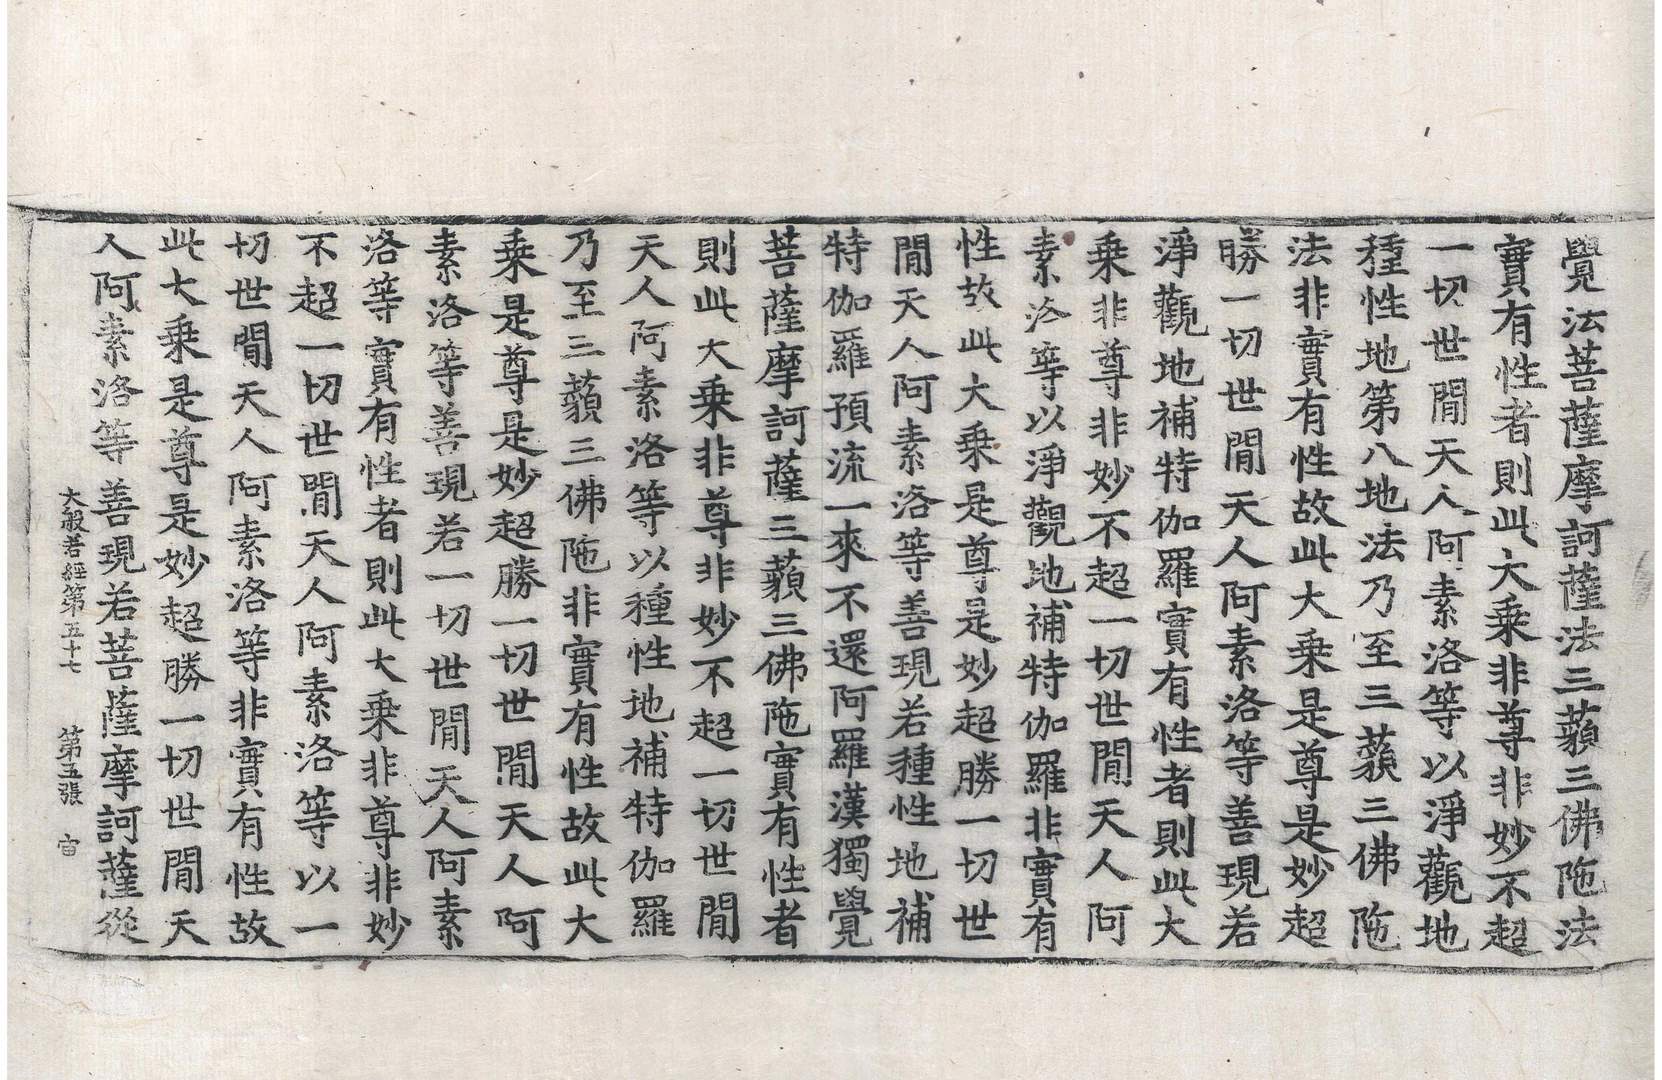 覺法菩薩摩訶薩法三藐三佛陁法
實有性者則此大乗非尊非妙不超
一切世間天人阿素洛等以淨觀地
種性地第八地法乃至三藐三佛陁
法非實有性故此大乗是尊是妙超
勝一切世間天人阿素洛等善現若
淨觀地補特伽羅實有性者則此大
乗非尊非妙不超一切世間天人阿
素洛等以淨觀地補特伽羅非實有
性故此大乗是尊是妙超勝一切世
間天人阿素洛等善現若種性地補
特伽羅預流一來不還阿羅漢獨覺
菩薩摩訶薩三藐三佛陁實有性者
則此大乗非尊非妙不超一切世間
天人阿素洛等以種性地補特伽羅
乃至三藐三佛陁非實有性故此大
乗是尊是妙超勝一切世間天人阿
素洛等善現若一切世間天人阿素
洛等實有性者則此大乗非尊非妙
不超一切世間天人阿素洛等以一
切世間天人阿素洛等非實有性故
此大乗是尊是妙超勝一切世間天
人阿素洛等善現若菩薩摩訶薩從
大般若經第五十七 第五張 宙